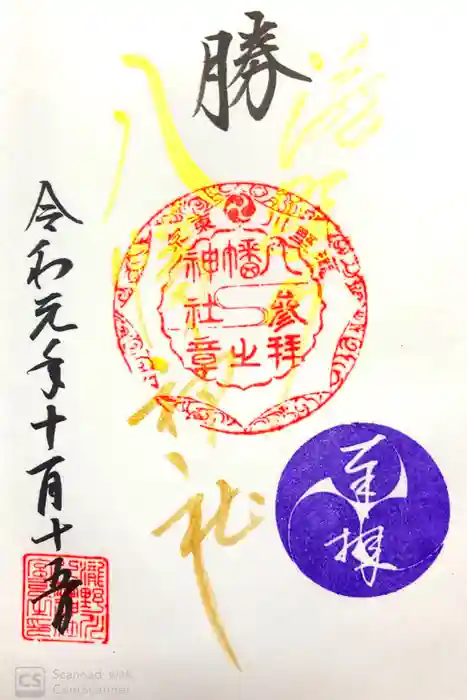 勝
八幡神社
瀧野川
東京
八幡神社
參拜之章
奉拝
令和元年十月十五日
瀧野川
CS Scanned with
CamScanner